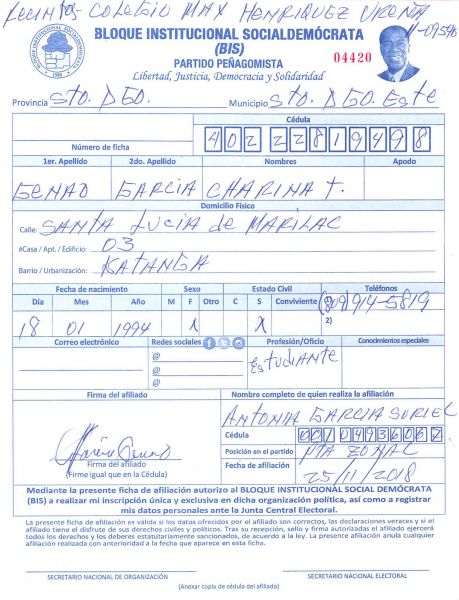 Recinto - Colegio Max Henriquez Ureña
BLOQUE INSTITUCIONAL SOCIALDEMÓCRATA
(BIS)
04420
PARTIDO PEÑAGOMISTA
Libertad, Justicia, Democracia y Solidaridad
Provincia Sto. DGO. Municipio Sto. DGO. Este
Cédula
Número de ficha 402 2281949 8
1er. Apellido 2do. Apellido Nombres Apodo
GENAO GARCIA CHARINA T.
Domicilio Físico
Calle: SANTA LUCIA de MARILAC
#Casa / Apt. / Edificio: 03
Barrio / Urbanización: KATANGA
Fecha de nacimiento Sexo Estado Civil Teléfonos
Día Mes Año M F Otro C S Conviviente (809) 914-5819
18 01 1994 X X 2)
Correo electrónico Redes sociales Profesión/Oficio Conocimientos especiales
@ Estudiante
@
@
Firma del afiliado Nombre completo de quien realiza la afiliación
ANTONIA GARCIA SURIEL
Cédula
Posición en el partido PTA ZONAL
Firma del afiliado
(Firme igual que en la Cédula)
Fecha de afiliación 25/11/2018
Mediante la presente ficha de afiliación autorizo al BLOQUE INSTITUCIONAL SOCIAL DEMÓCRATA
(BIS) a realizar mi inscripción única y exclusiva en dicha organización política, así como a registrar
mis datos personales ante la Junta Central Electoral.
La presente ficha de afiliación es válida si los datos ofrecidos por el afiliado son correctos, las declaraciones veraces y si el
afiliado tiene el disfrute de sus derechos civiles y políticos. Tras su recepción, sello y firma autorizada el afiliado ejercerá
todos los derechos y los deberes estatutariamente sancionados, de acuerdo a la ley. La presente afiliación anula cualquier
afiliación realizada con anterioridad a la fecha que aparece en esta ficha.
SECRETARIO NACIONAL DE ORGANIZACIÓN SECRETARIO NACIONAL ELECTORAL
(Anexar copia de cédula del afiliado)